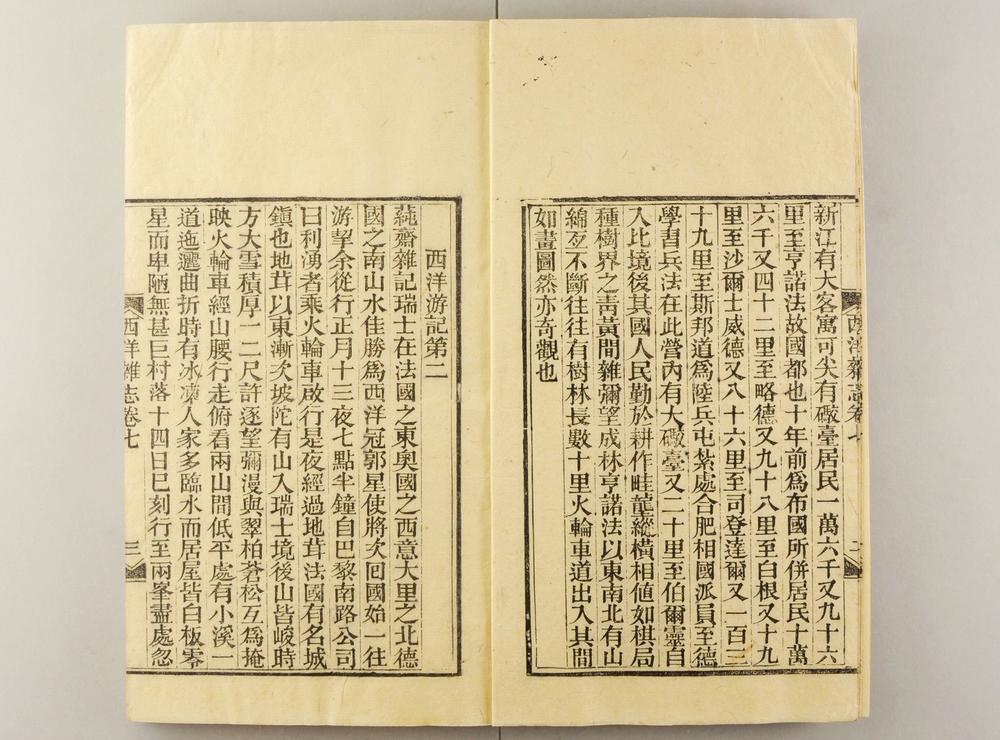 新江有大客寓可尖有礮臺居民一萬六千又九十六
里至亨諾法故國都也十年前爲布國所併居民十萬
六千又四十二里至略德又九十八里至白根又十九
里至沙爾士威德又八十六里至司登達爾又一百三
十九里至斯邦道爲陸兵屯紮處合肥相國派員至德
學習兵法在此營內有大礮臺又二十里至伯爾靈自
入比境後其國人民勤於耕作畦壟縱橫相値如棋局
種樹界之靑黃間雜彌望成林亨諾法以東南北有山
綿亙不斷往往有樹林長數十里火輪車道出入其間
如畫圖然亦奇觀也
西洋雜志卷七
二
西洋游記第二
蒓齋雜記瑞士在法國之東奧國之西意大里之北德
國之南山水佳勝爲西洋冠郭星使將次回國始一往
游挈余從行正月十三夜七點半鐘自巴黎南路公司
曰利湧者乘火輪車啟行是夜經過地茸法國有名城
鎮也地茸以東漸次坡陀有山入瑞士境後山皆峻時
方大雪積厚一二尺許逐望彌漫與翠柏蒼松互爲掩
映火輪車經山腰行走俯看兩山間低平處有小溪一
道迤邐曲折時有冰凍人家多臨水而居屋皆白板零
星而卑陋無甚巨村落十四日巳刻行至兩峯盡處忽
西洋雜志卷七
三